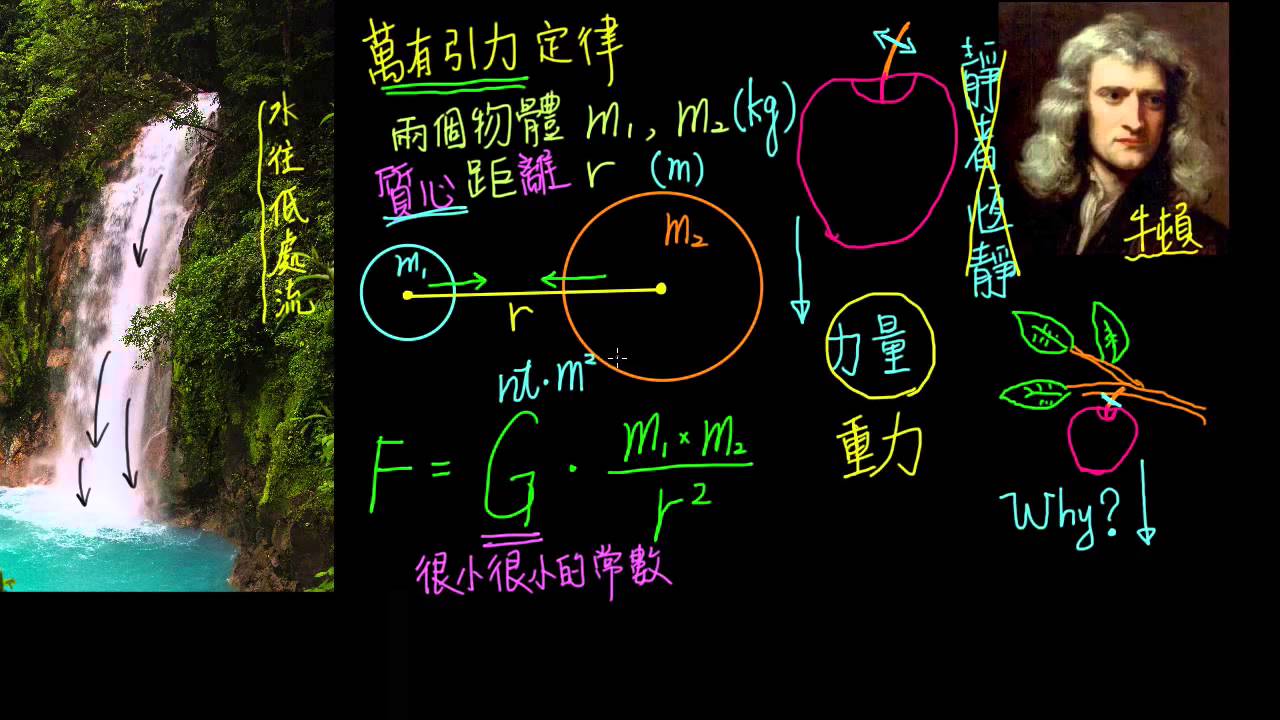 水往低處流
萬有引力定律
兩個物體 m₁, m₂ (kg)
質心距離 r (m)
m₁
m₂
r
nt·m²
F = G · m₁×m₂ / r²
很小很小的常數
力量
重力
靜者恆靜
牛頓
Why?